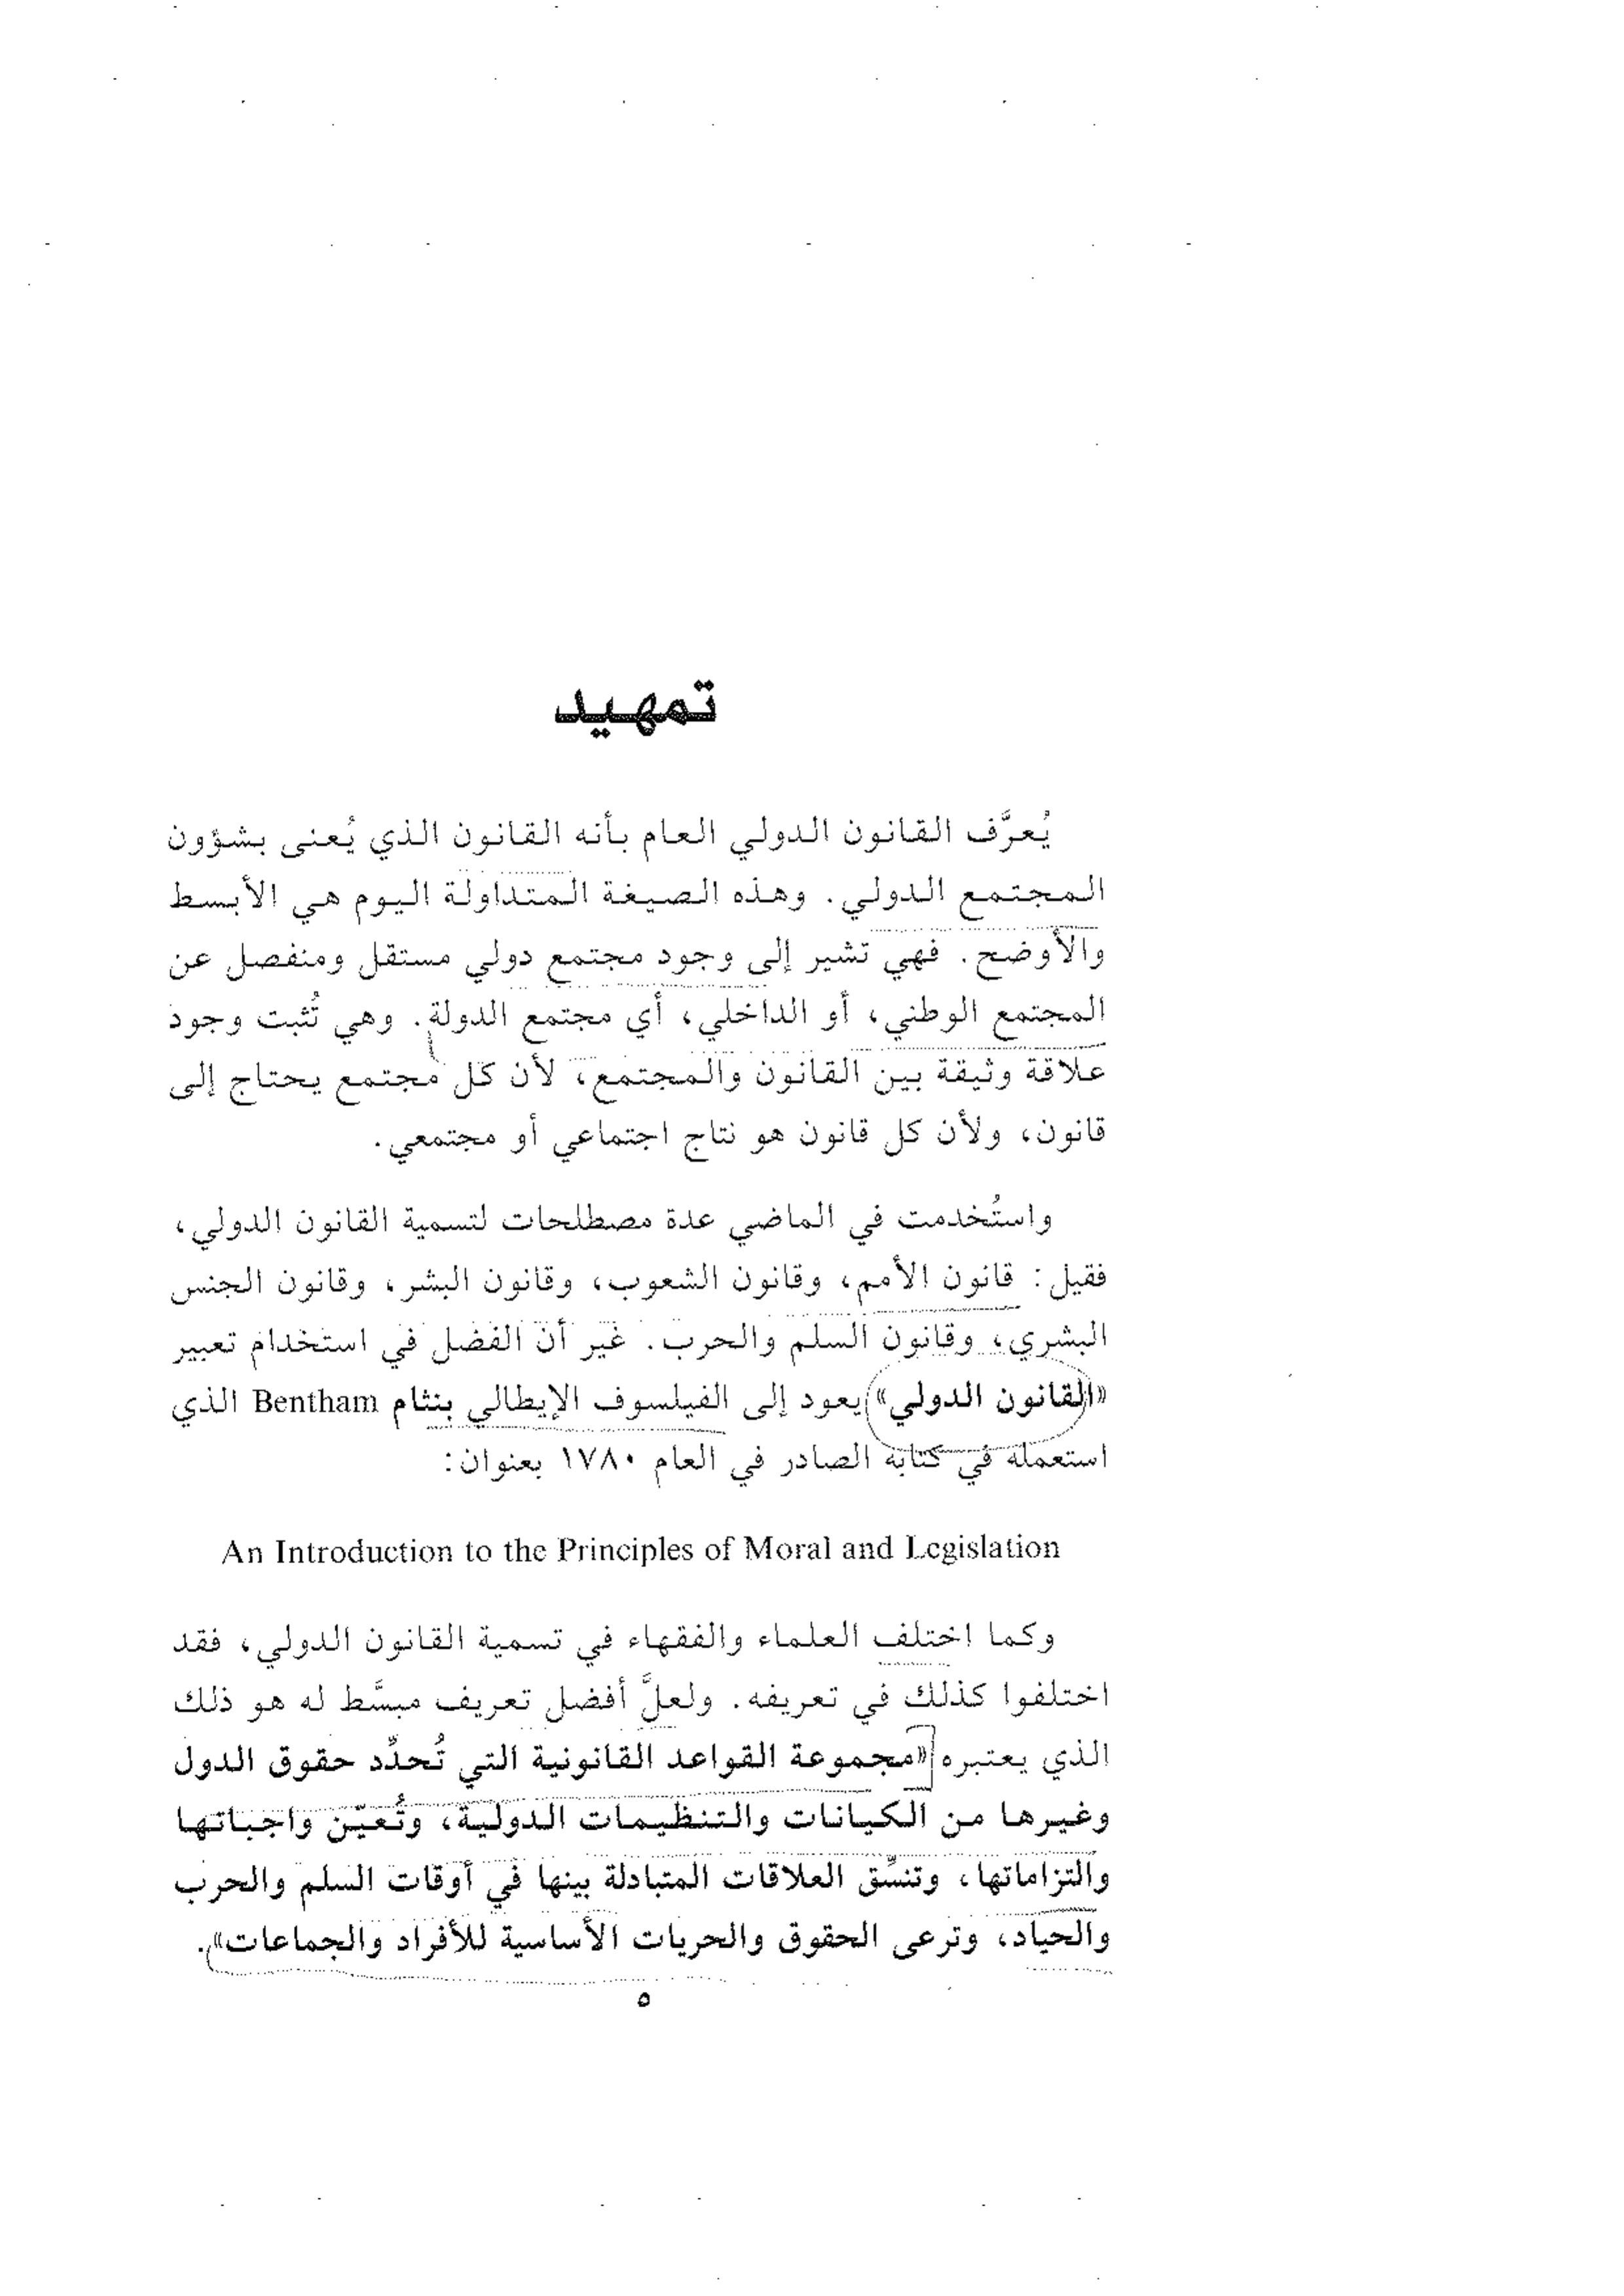 تمهيد
يُعرَّف القانون الدولي العام بأنه القانون الذي يُعنى بشؤون
المجتمع الدولي. وهذه الصيغة المتداولة اليوم هي الأبسط
والأوضح. فهي تشير إلى وجود مجتمع دولي مستقل ومنفصل عن
المجتمع الوطني، أو الداخلي، أي مجتمع الدولة. وهي تُثبت وجود
علاقة وثيقة بين القانون والمجتمع، لأن كل مجتمع يحتاج إلى
قانون، ولأن كل قانون هو نتاج اجتماعي أو مجتمعي.
واستُخدمت في الماضي عدة مصطلحات لتسمية القانون الدولي،
فقيل: قانون الأمم، وقانون الشعوب، وقانون البشر، وقانون الجنس
البشري، وقانون السلم والحرب. غير أن الفضل في استخدام تعبير
«القانون الدولي» يعود إلى الفيلسوف الإيطالي بنثام Bentham الذي
استعمله في كتابه الصادر في العام ١٧٨٠ بعنوان:
An Introduction to the Principles of Moral and Legislation
وكما اختلف العلماء والفقهاء في تسمية القانون الدولي، فقد
اختلفوا كذلك في تعريفه. ولعلَّ أفضل تعريف مبسَّط له هو ذلك
الذي يعتبره «مجموعة القواعد القانونية التي تُحدِّد حقوق الدول
وغيرها من الكيانات والتنظيمات الدولية، وتُعيّن واجباتها
والتزاماتها، وتنسِّق العلاقات المتبادلة بينها في أوقات السلم والحرب
والحياد، وترعى الحقوق والحريات الأساسية للأفراد والجماعات».
٥